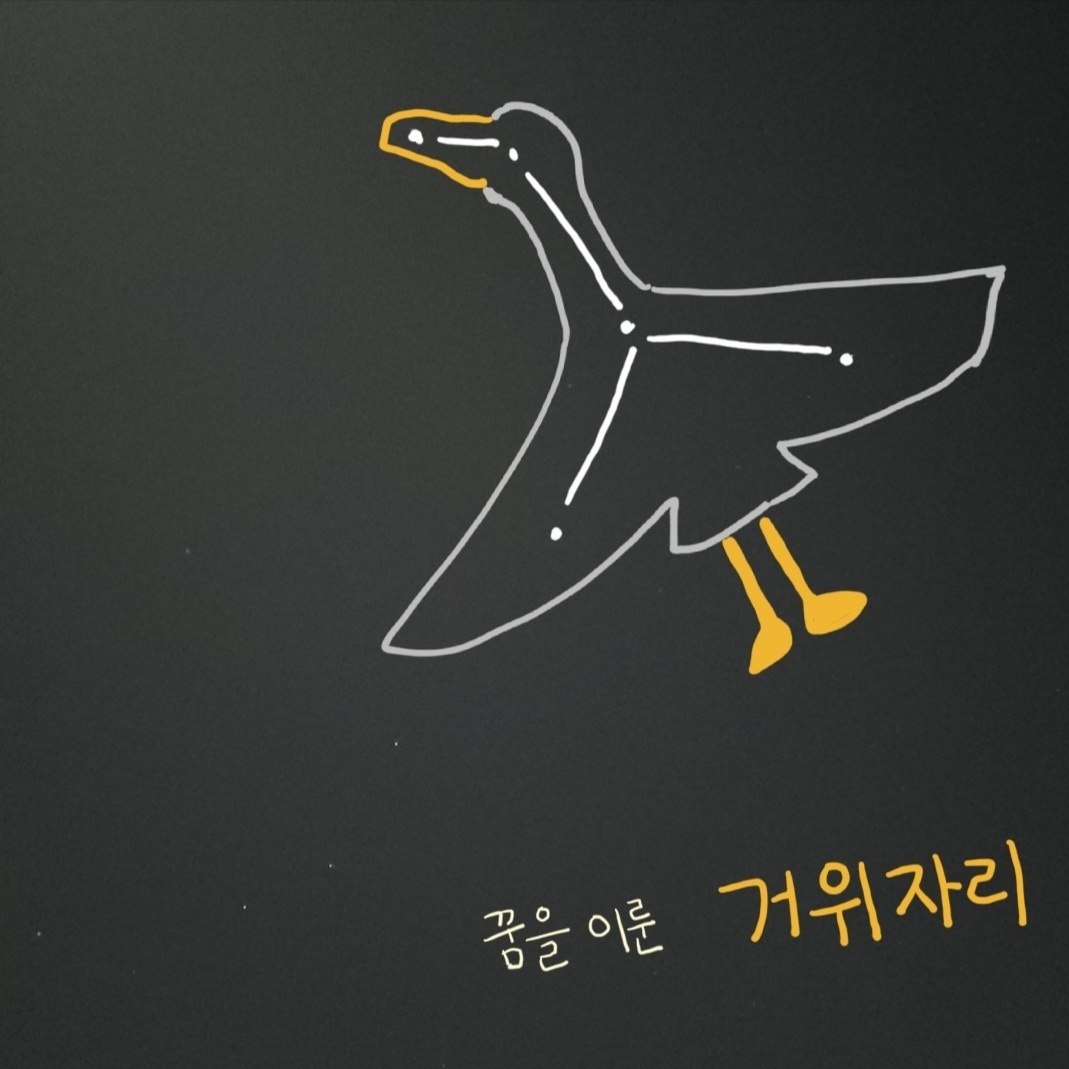 꿈을 이룬 거위자리